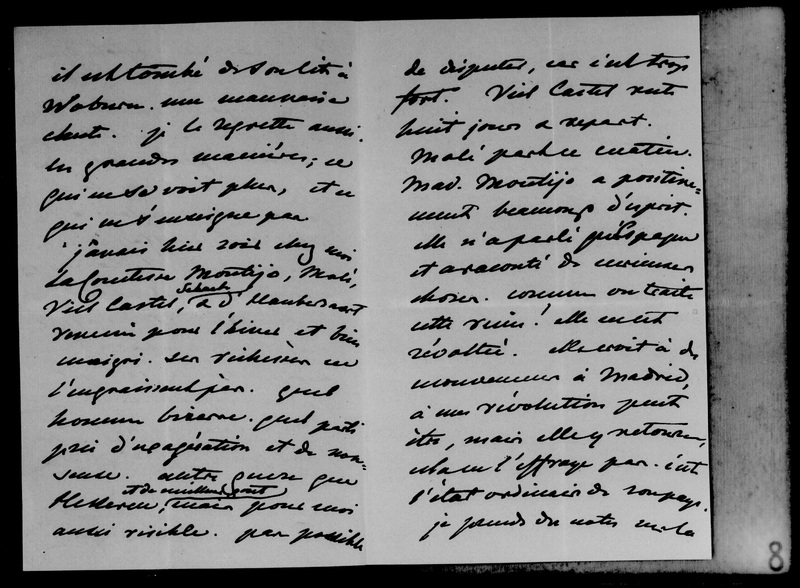 il est tombé de son lit à
Woburn. une mauvaise
chute. je le regrette aussi.
les grandes manières; ce
qui ne se voit plus, et ce
qui ne s'enseigne pas
j'avais hier soir chez moi
la Comtesse Montijo, Molé,
Viel Castel, Schack, d'Haubersaert
revenu pour l'hiver et bien
maigri. ses richesses ne
l'engraissent pas. quel
homme bizarre. quel parti
pris d'exagération et de non-
sense. autre genre que
et de meilleur goût
Heckeren, mais pour moi
aussi risible. pas possible
de disputer, car c'est trop
fort. Viel Castel reste
huit jours & repart.
Molé part ce matin.
Mad. Montijo a positive=
ment beaucoup d'esprit.
elle n'a parlé
et a raconté de curieuses
choses. comme on traite
cette reine! elle en est
révoltée. elle croit à des
mouvements à Madrid,
à une révolution peut
être, mais elle y retourne,
cela ne l'effraye pas. c'est
l'état ordinaire de son pays.
je prends des notes sur la
8